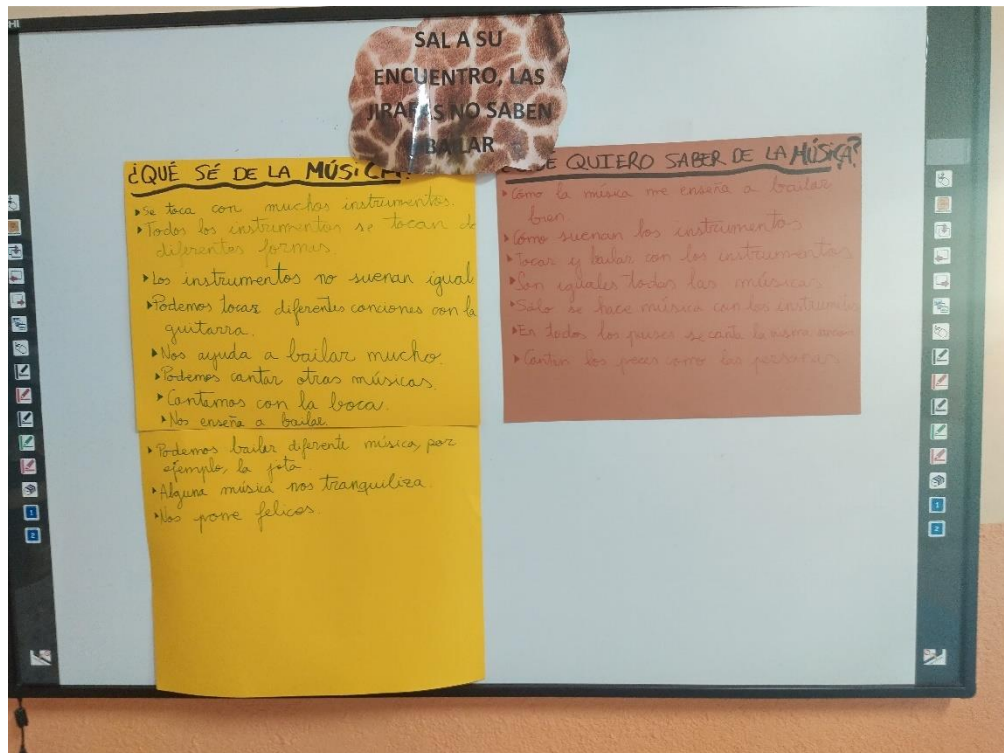 SAL A SU
ENCUENTRO, LAS
JIRAFAS NO SABEN
BAILAR
¿QUÉ SÉ DE LA MÚSICA?
▸Se toca con muchos instrumentos.
▸Todos los instrumentos se tocan de
diferentes formas
▸Los instrumentos no suenan igual
▸Podemos tocar diferentes canciones con la
guitarra.
▸Nos ayuda a bailar mucho.
▸Podemos cantar otras músicas.
▸Cantamos con la boca.
▸Nos enseña a bailar.
▸Podemos bailar diferente música, por
ejemplo, la jota.
▸Alguna música nos tranquiliza.
▸Nos pone felices.
QUIERO SABER DE LA MÚSICA?
▸Cómo la música me enseña a bailar
bien.
▸Cómo suenan los instrumentos
▸Tocar y bailar con los instrumentos
▸Son iguales todas las músicas
▸Sólo se hace música con los instrumentos
▸En todos los países se canta la misma
▸Cantan los peces como las personas
1
2
1
2